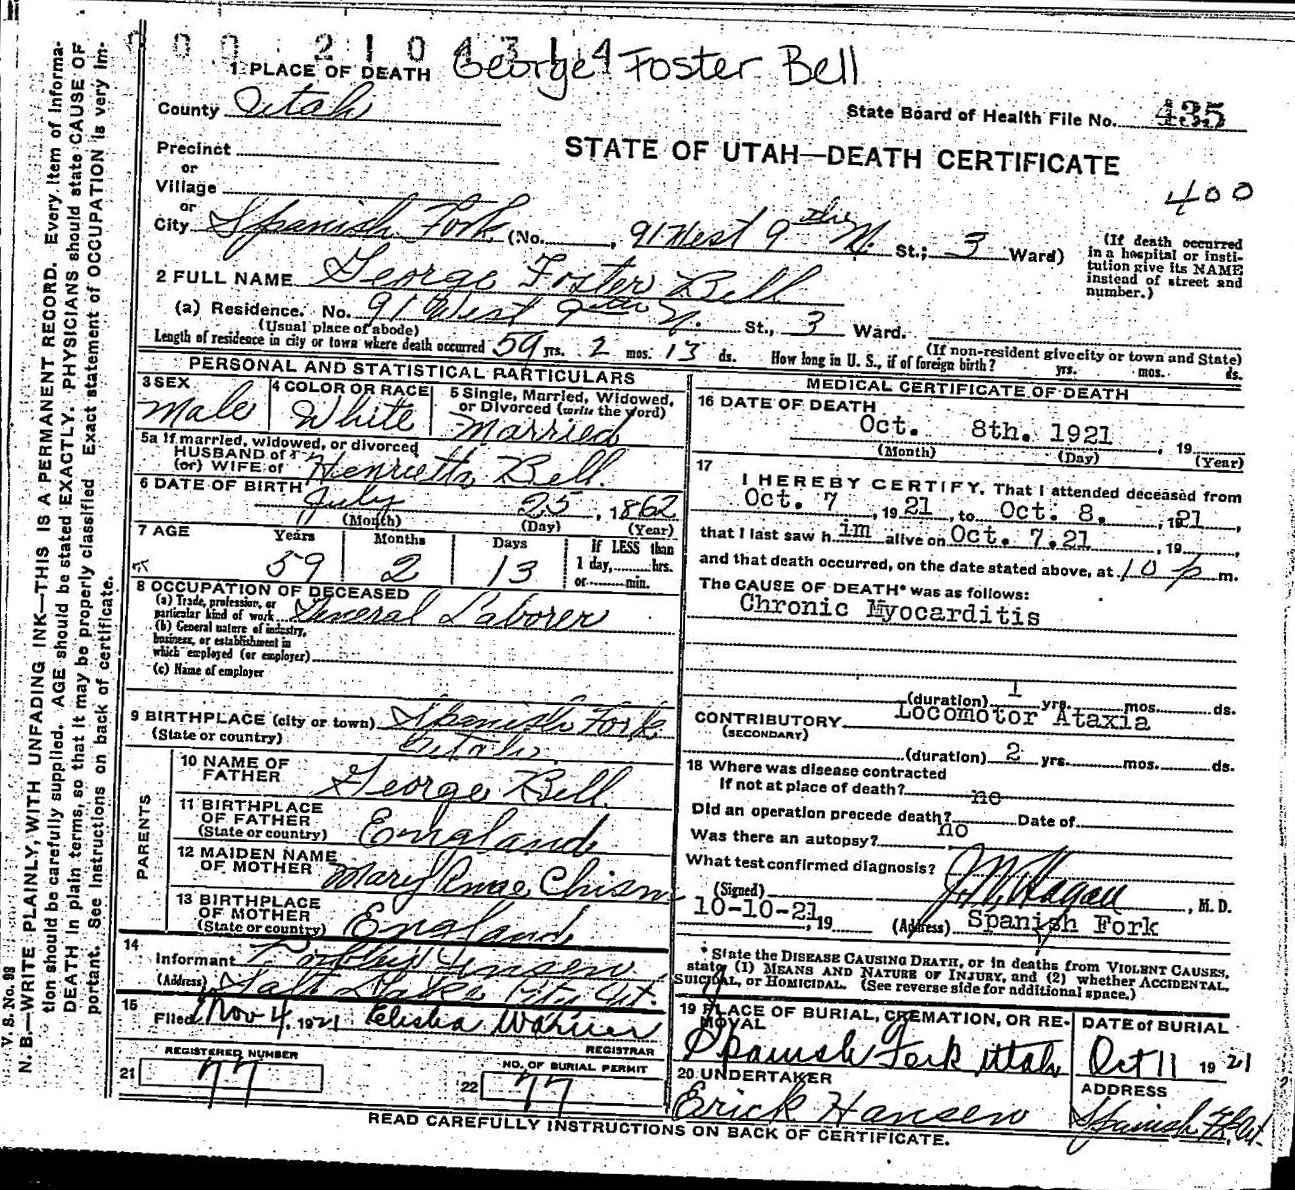 0 0 0 2 1 0 4 3 1 4
George Foster Bell
1 PLACE OF DEATH
County Utah
State Board of Health File No. 435
STATE OF UTAH—DEATH CERTIFICATE
400
Precinct
or
Village
or
City Spanish Fork (No. , 91 West 9th N. St.; 3 Ward)
(If death occurred in a hospital or institution give its NAME instead of street and number.)
2 FULL NAME George Foster Bell
(a) Residence. No. 91 West 9th N. St., 3 Ward.
(Usual place of abode)
(If non-resident give city or town and State)
Length of residence in city or town where death occurred 59 yrs. 2 mos. 13 ds. How long in U. S., if of foreign birth? yrs. mos. ds.
PERSONAL AND STATISTICAL PARTICULARS
3 SEX
Male
4 COLOR OR RACE
White
5 Single, Married, Widowed, or Divorced (write the word)
Married
5a If married, widowed, or divorced
HUSBAND of
(or) WIFE of Henrietta Bell.
6 DATE OF BIRTH July 25, 1862
(Month) (Day) (Year)
7 AGE Years Months Days If LESS than
59 2 13 1 day, hrs.
or min.
8 OCCUPATION OF DECEASED
(a) Trade, profession, or particular kind of work General Laborer
(b) General nature of industry, business, or establishment in which employed (or employer)
(c) Name of employer
9 BIRTHPLACE (city or town) Spanish Fork
(State or country) Utah.
PARENTS
10 NAME OF FATHER George Bell
11 BIRTHPLACE OF FATHER
(State or country) England
12 MAIDEN NAME OF MOTHER Mary Chism
13 BIRTHPLACE OF MOTHER
(State or country) England
14
Informant
(Address) Salt Lake City Ut.
15
Filed Nov 4, 1921 Elisha Warner
REGISTRAR
REGISTERED NUMBER
21 77
NO. OF BURIAL PERMIT
22 77
MEDICAL CERTIFICATE OF DEATH
16 DATE OF DEATH
Oct. 8th. 1921 , 19
(Month) (Day) (Year)
17
I HEREBY CERTIFY, That I attended deceased from
Oct. 7 , 1921 , to Oct. 8. , 1921,
that I last saw him alive on Oct. 7.21 , 19 ,
and that death occurred, on the date stated above, at 10 p m.
The CAUSE OF DEATH* was as follows:
Chronic Myocarditis
(duration) 1 yrs. mos. ds.
CONTRIBUTORY Locomotor Ataxia
(SECONDARY)
(duration) 2 yrs. mos. ds.
18 Where was disease contracted
If not at place of death?
no
Did an operation precede death? Date of
no
Was there an autopsy?
What test confirmed diagnosis?
(Signed) J. W. Hagan , M. D.
10-10-21, 19 (Address) Spanish Fork
* State the DISEASE CAUSING DEATH, or in deaths from VIOLENT CAUSES,
state (1) MEANS AND NATURE OF INJURY, and (2) whether ACCIDENTAL,
SUICIDAL, or HOMICIDAL. (See reverse side for additional space.)
19 PLACE OF BURIAL, CREMATION, OR REMOVAL
Spanish Fork Utah
DATE of BURIAL
Oct 11 1921
20 UNDERTAKER
Erick Hansen
ADDRESS
Spanish Fk, Ut.
READ CAREFULLY INSTRUCTIONS ON BACK OF CERTIFICATE.
V. S. No. 98
N. B.—WRITE PLAINLY, WITH UNFADING INK—THIS IS A PERMANENT RECORD. Every item of informa-
tion should be carefully supplied. AGE should be stated EXACTLY. PHYSICIANS should state CAUSE OF
DEATH in plain terms, so that it may be properly classified. Exact statement of OCCUPATION is very im-
portant. See Instructions on back of certificate.